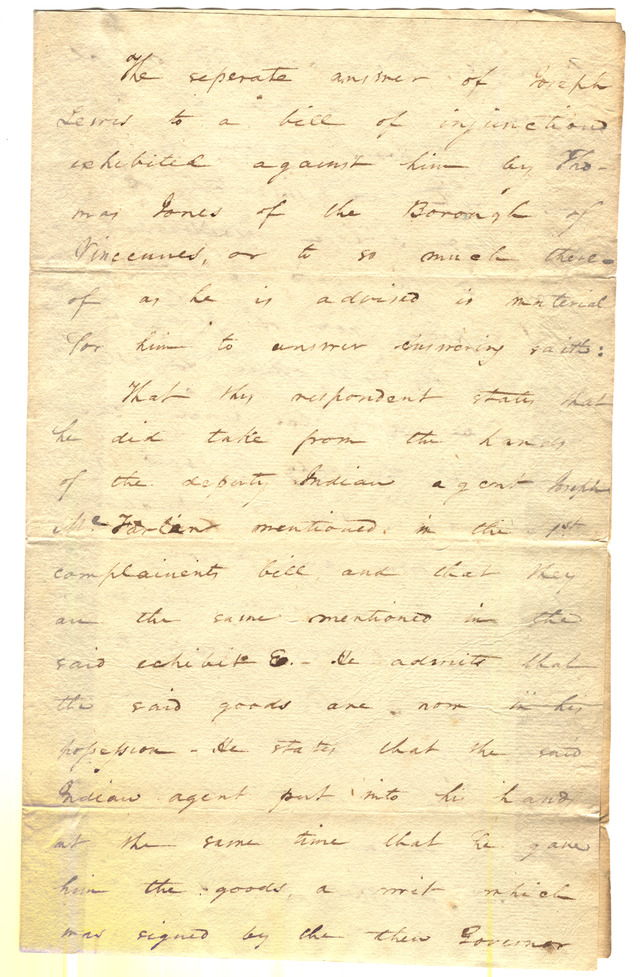 The seperate answer of Joseph
Lewis to a bill of injunction
exhibited against him by Tho-
mas Jones of the Borough of
Vincennes, or to so much there-
of as he is advised is material
for him to answer answering saith:
That this respondent states that
he did take from the hands
of the deputy Indian agent Joseph
Mc Farland mentioned in the 1st
complainents bill and that they
are the same mentioned in the
said exhibit E. - He admits that
the said goods are now in his
possession - He states that the said
Indian agent put into his hands
at the same time that he gave
him the goods, a writ which
was signed by the then Governor